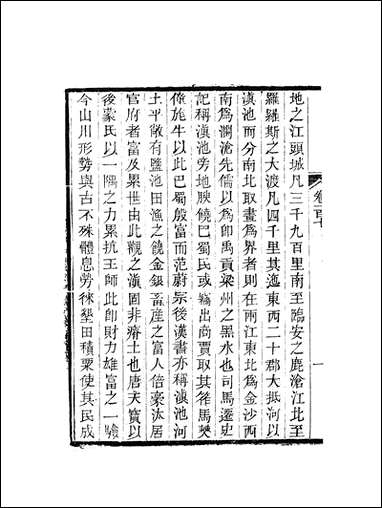 地之江頭城凡三千九百里南至臨安之鹿滄江北至
羅羅斯之大渡凡四千里其迤東西二十郡大抵河以
滇池而分南北取畫爲界者則在兩江東北爲金沙西
南爲瀾滄先儒以爲即禹貢梁州之黑水也司馬遷史
記稱滇池旁地肥饒巴蜀民或竊出商賈取其筰馬僰
僮旄牛以此巴蜀殷富而范蔚宗後漢書亦稱滇池河
土平敞有鹽池田漁之饒金銀畜產之富人倍豪汰居
官府者富及累世由此觀之滇固非瘠土也唐天寶以
後蒙氏以一隅之力累抗王師此即財力雄富之一驗
今山川形勢與古不殊體息勞徠墾田積粟使其民成
卷百十
一